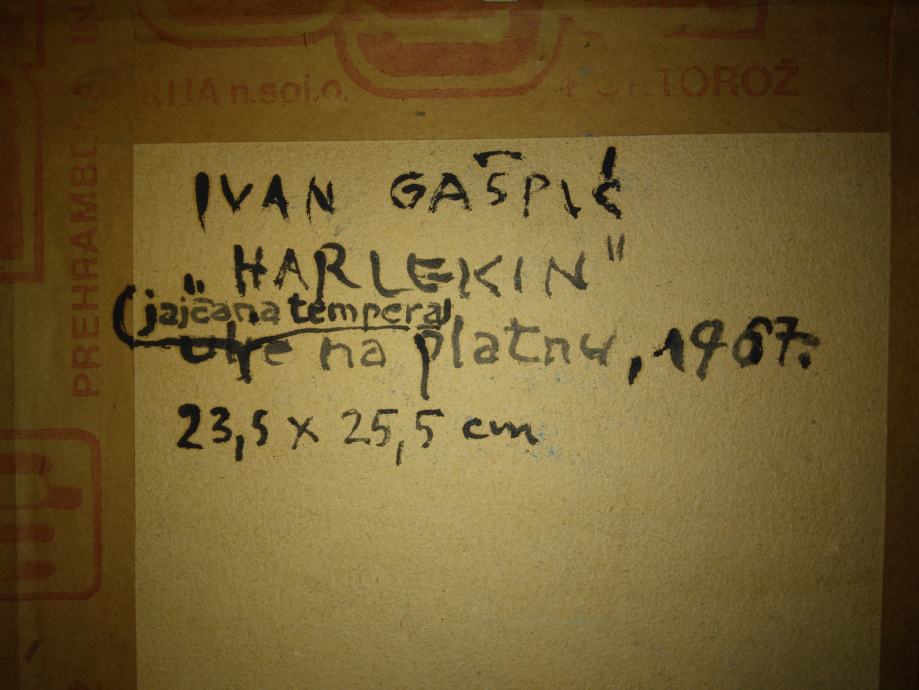 RIJA n.sol.o. PORTOROŽ
PREHRAMBENA IN
IVAN GAŠPIĆ
"HARLEKIN"
(jajčana tempera)
ulje na platnu, 1967.
23,5 x 25,5 cm